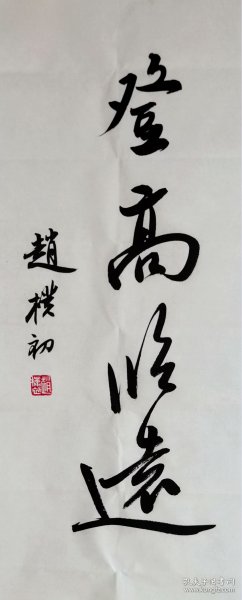 登高临遠
趙樸初
孔夫子旧书网